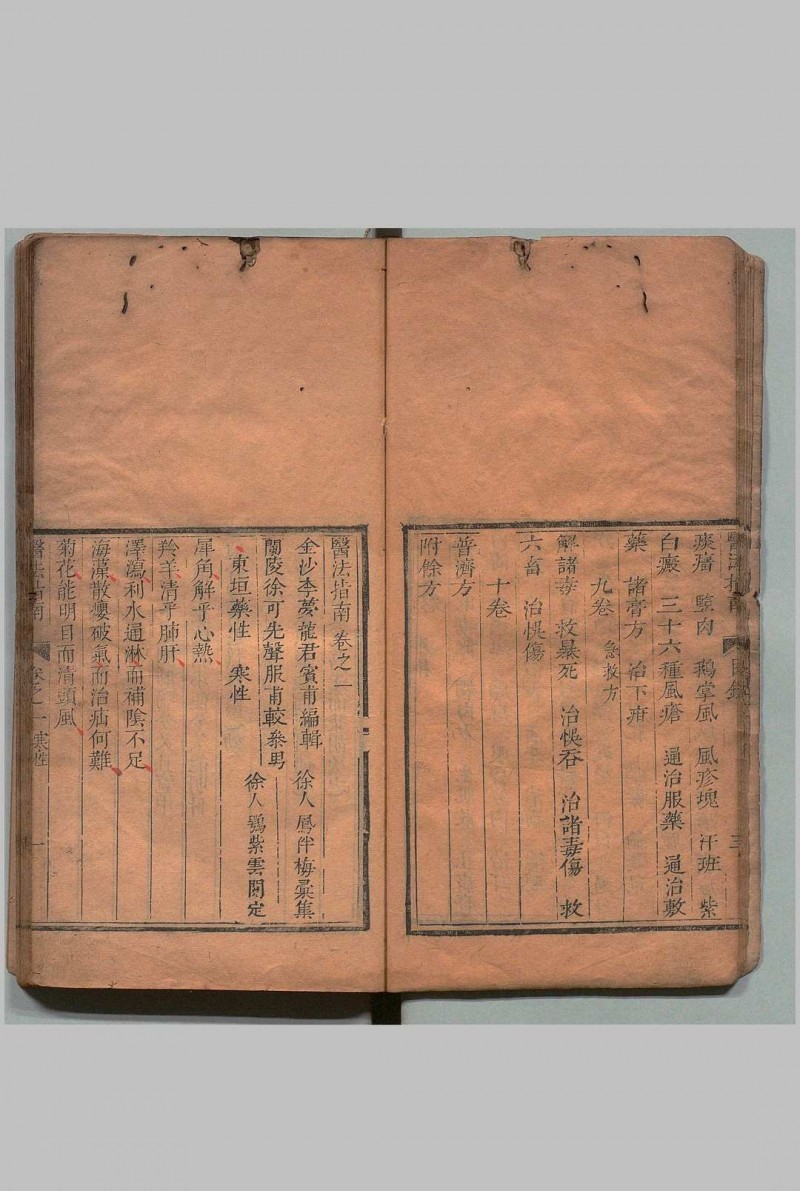 醫法指南 目錄 三
瘊瘤 㿀肉 鵝掌風 風疹塊 汗班 紫
白癜 三十六種風瘡 通治服藥 通治敷
藥 諸膏方 治下疳
九卷 急救方
解諸毒 救暴死 治悞吞 治諸毒傷 救
六畜 治悞傷
十卷
普濟方
附餘方
醫法指南卷之一
金沙李夢龍君賓甫編輯 徐人鳳伴梅彚集
蘭陵徐可先聲服甫較叅男
徐人鶚紫雲閱定
東垣藥性 寒性
犀角解乎心熱
羚羊清乎肺肝
澤瀉利水通淋而補隂不足
海藻散癭破氣而治疝何難
菊花能明目而清頭風
醫法指南 卷之一 寒性 一